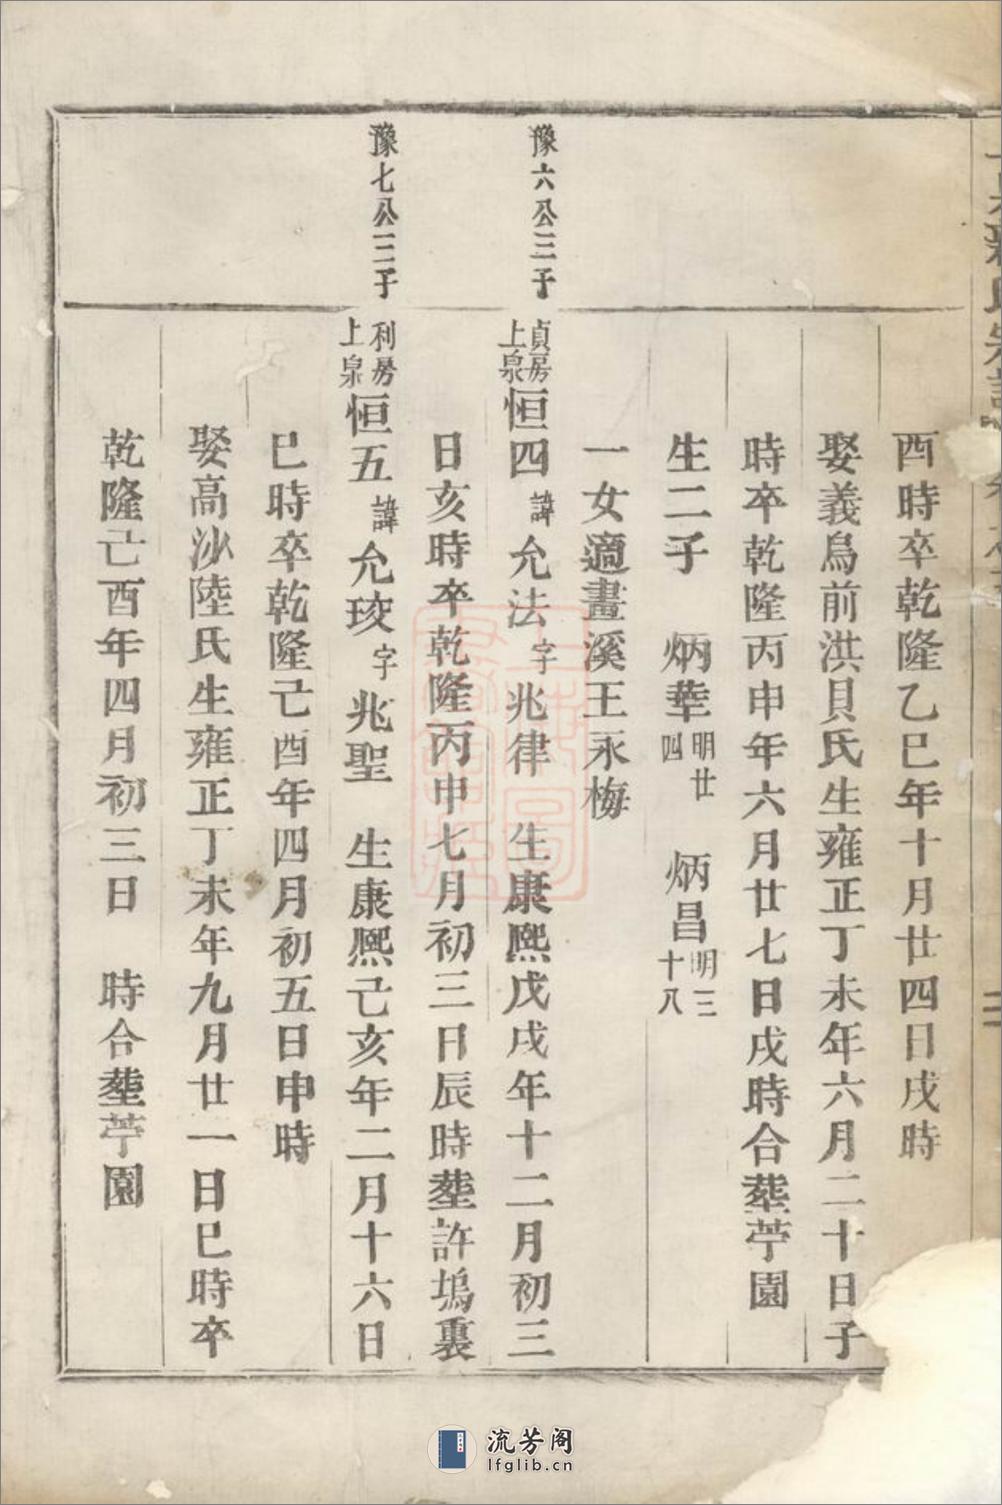 酉時卒乾隆乙巳年十月廿四日戌時
娶義烏前洪貝氏生雍正丁未年六月二十日子
時卒乾隆丙申年六月廿七日戌時合塟苧園
生二子 炳華明廿四 炳昌明三十八
一女適畫溪王永梅
豫六公三子
貞房上泉恒四諱允法字兆律 生康熙戊戌年十二月初三
日亥時卒乾隆丙申七月初三日辰時塟許塢裏
豫七公二子
利房上泉恒五諱允琰字兆聖 生康熙己亥年二月十六日
巳時卒乾隆己酉年四月初五日申時
娶高沙陸氏生雍正丁未年九月廿一日巳時卒
乾隆己酉年四月初三日 時合塟苧園
流芳阁
lfglib.cn